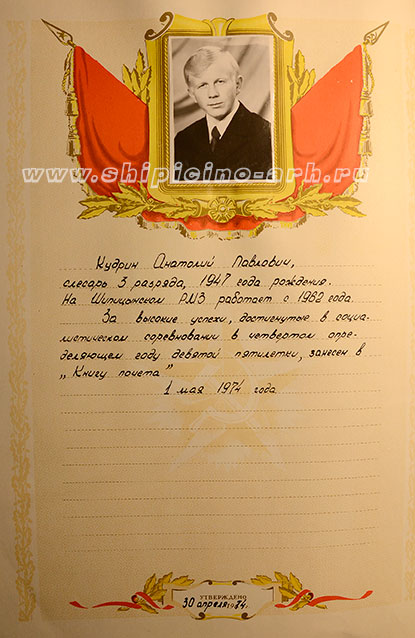 www.shipicino-arh.ru
Кудрин Анатолий Павлович,
слесарь 3 разряда, 1947 года рождения.
На Шипицынском РМЗ работает с 1962 года.
За высокие успехи, достигнутые в социа-
листическом соревновании в четвертом опре-
деляющем году девятой пятилетки, занесен в
„Книгу почета"
1 мая 1974 года
УТВЕРЖДЕНО
30 апреля 1974г.
www.shipicino-arh.ru